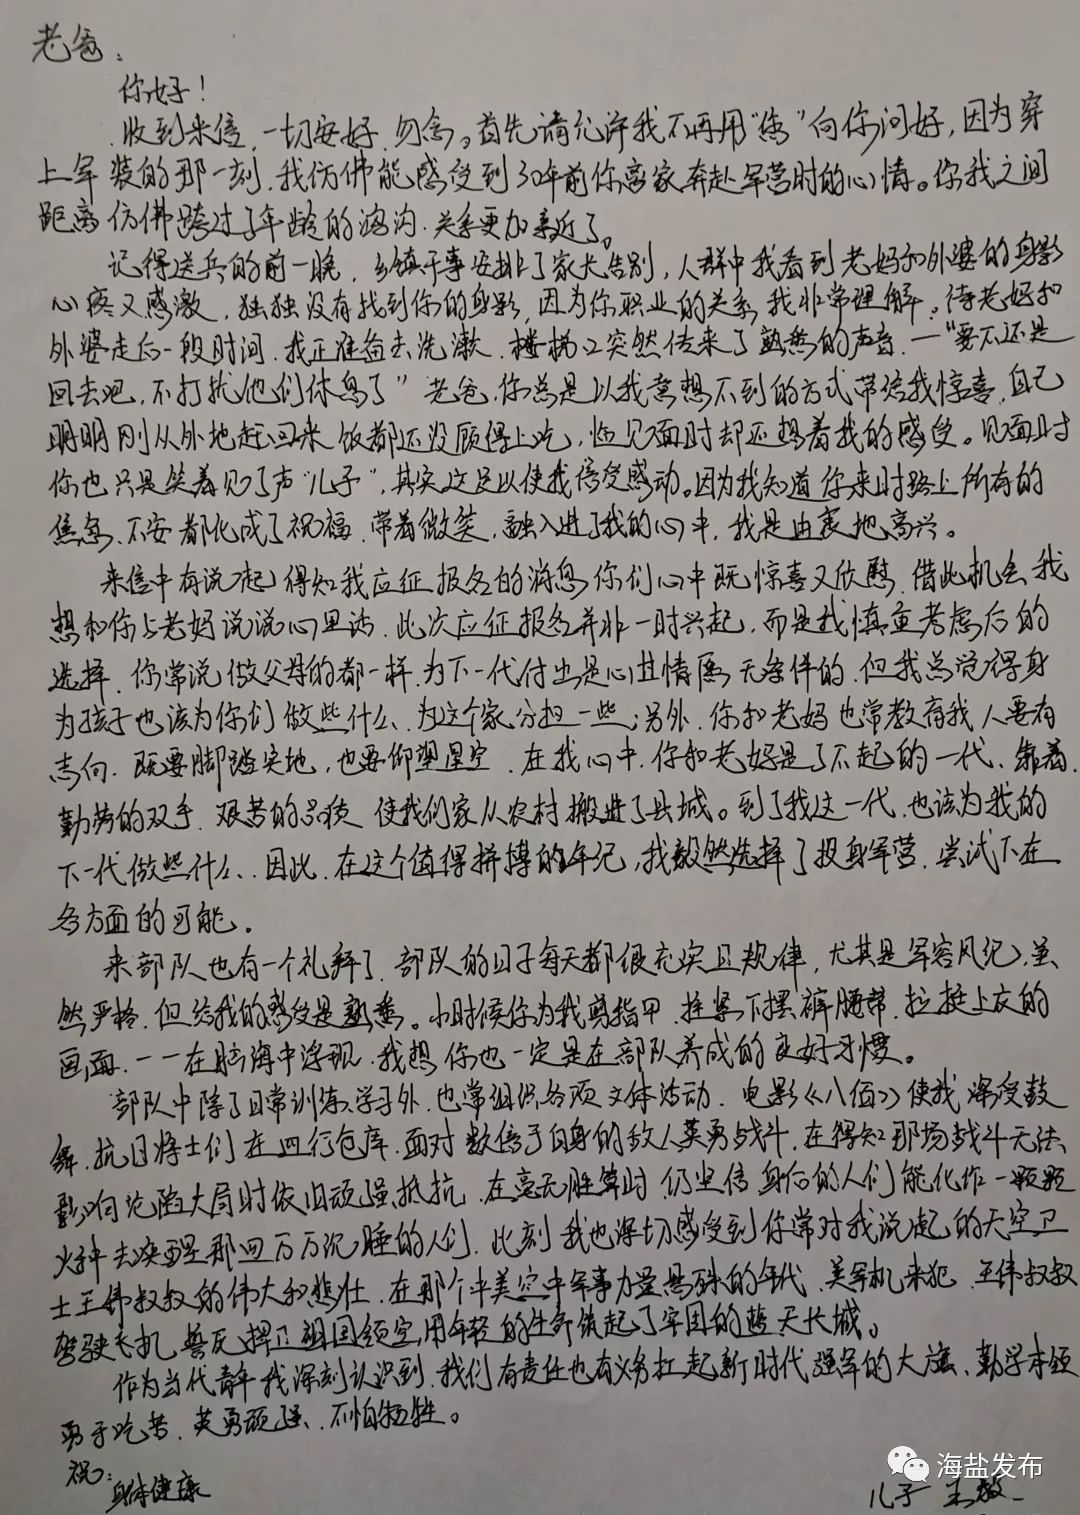 老爸：
你好！
收到来信，一切安好，勿念。首先请允许我不再用“您”向你问好，因为穿
上军装的那一刻，我仿佛能感受到30年前你离家奔赴军营时的心情。你我之间
距离仿佛跨过了年龄的鸿沟，关系更加亲近了。
记得送兵的前一晚，乡镇干事安排了家人告别，人群中我看到老妈和外婆的身影
心疼又感激，独独没有找到你的身影，因为你职业的关系，我非常理解。待老妈和
外婆走后一段时间，我正准备去洗漱，楼梯口突然传来了熟悉的声音，一“要不还是
回去吧，不打扰他们休息了”老爸，你总是以我意想不到的方式带给我惊喜，自己
明明刚从外地赶回来饭都还没顾得上吃，临见面时却还想着我的感受。见面时
你也只是笑着见了声“儿子”，其实这足以使我倍受感动。因为我知道你来时路上所有的
焦急、不安都化成了祝福，带着微笑，融入进了我的心中，我是由衷地高兴。
来信中有说起得知我应征报名的消息你们心中既惊喜又欣慰，借此机会我
想和你与老妈说说心里话，此次应征报名并非一时兴起，而是我慎重考虑后的
选择，你常说做父母的都一样，为下一代付出是心甘情愿无条件的，但我总觉得身
为孩子也该为你们做些什么、为这个家分担一些；另外，你和老妈也常教育我人要有
志向，既要脚踏实地，也要仰望星空，在我心中，你和老妈是了不起的一代，靠着
勤劳的双手、艰苦的品质，使我们家从农村搬进了县城。到了我这一代，也该为我的
下一代做些什么，因此，在这个值得拼搏的年纪，我毅然选择了投身军营，尝试下在
各方面的可能。
来部队也有一个礼拜了，部队的日子每天都很充实且规律，尤其是军容风纪，虽
然严格，但给我的感受是熟悉。小时候你为我剪指甲，拴紧下摆裤腰带，拉挺上衣的
画面，一一在脑海中浮现，我想你也一定是在部队养成的良好习惯。
部队中除了日常训练、学习外，也常组织各项文体活动，电影《八佰》使我深受鼓
舞，抗日将士们在四行仓库，面对数倍于自身的敌人英勇战斗，在得知那场战斗无法
影响沦陷大局时依旧顽强抵抗，在毫无胜算时，仍坚信身后的人们能化作一颗颗
火种去唤醒那四万万沉睡的人们，此刻我也深切感受到你常对我说起的天空卫
士王伟叔叔的伟大和悲壮，在那个中美空中军事力量悬殊的年代，美军机来犯，王伟叔叔
驾驶飞机，誓死捍卫祖国领空，用年轻的生命筑起了牢固的蓝天长城。
作为当代青年我深刻认识到，我们有责任也有义务扛起新时代强军的大旗，勤学本领
勇于吃苦，英勇顽强，不怕牺牲。
祝：
身体健康
儿子 王
海盐发布